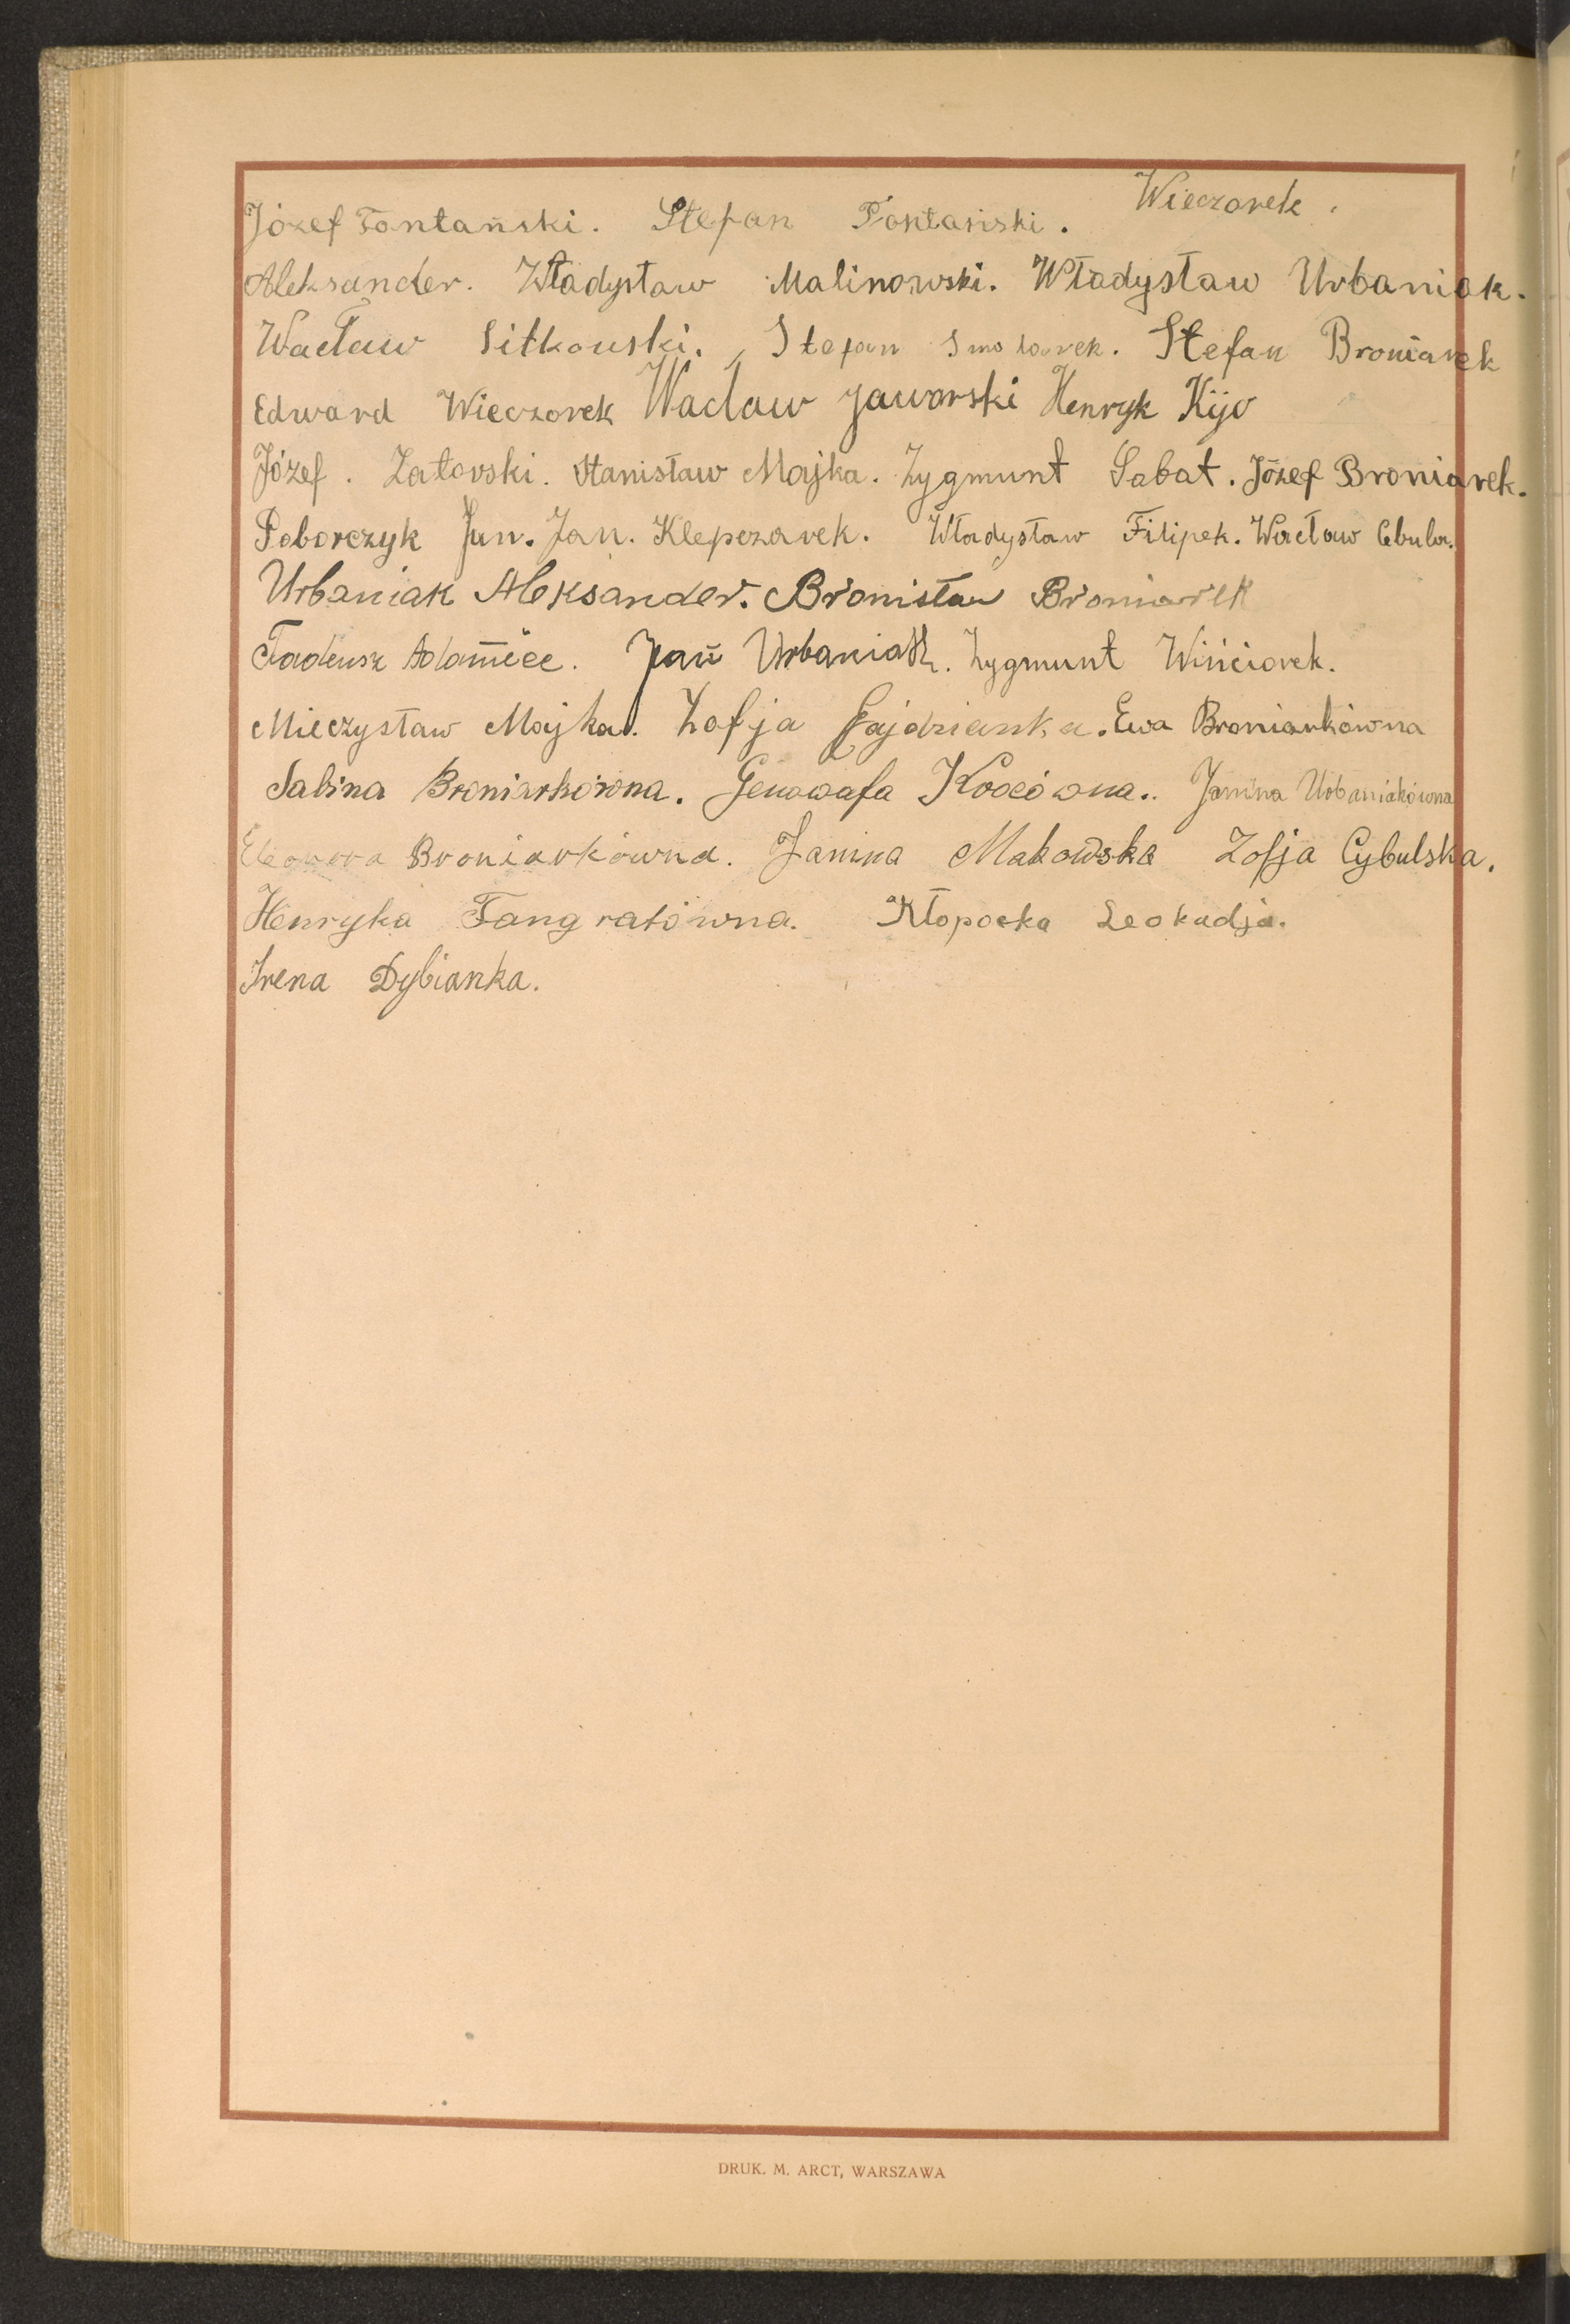 Józef Fontański. Stefan Fontański. Wieczorek.
Aleksander. Władysław Malinowski. Władysław Urbaniak.
Wacław Sitkowski. Stefan Smolarek. Stefan Broniarek
Edward Wieczorek Wacław Jaworski Henryk Kijo
Józef. Zatorski. Stanisław Majka. Zygmunt Sabat. Józef Broniarek.
Poborczyk Jan. Jan. Klepczarek. Władysław Filipek. Wacław Cbula.
Urbaniak Aleksander. Bronisław Broniarek
Tadeusz Adamiec. Jan Urbaniak. Zygmunt Wiśiorek.
Mieczysław Majka. Zofja Gajdzianka. Ewa Broniarkówna
Sabina Broniarkówna. Genowefa Kocówna.. Janina Urbaniakówna
Eleonora Broniarkówna. Janina Makowska Zofja Cybulska.
Henryka Fangratówna. Kłopocka Leokadja.
Irena Dybianka.
DRUK. M. ARCT, WARSZAWA